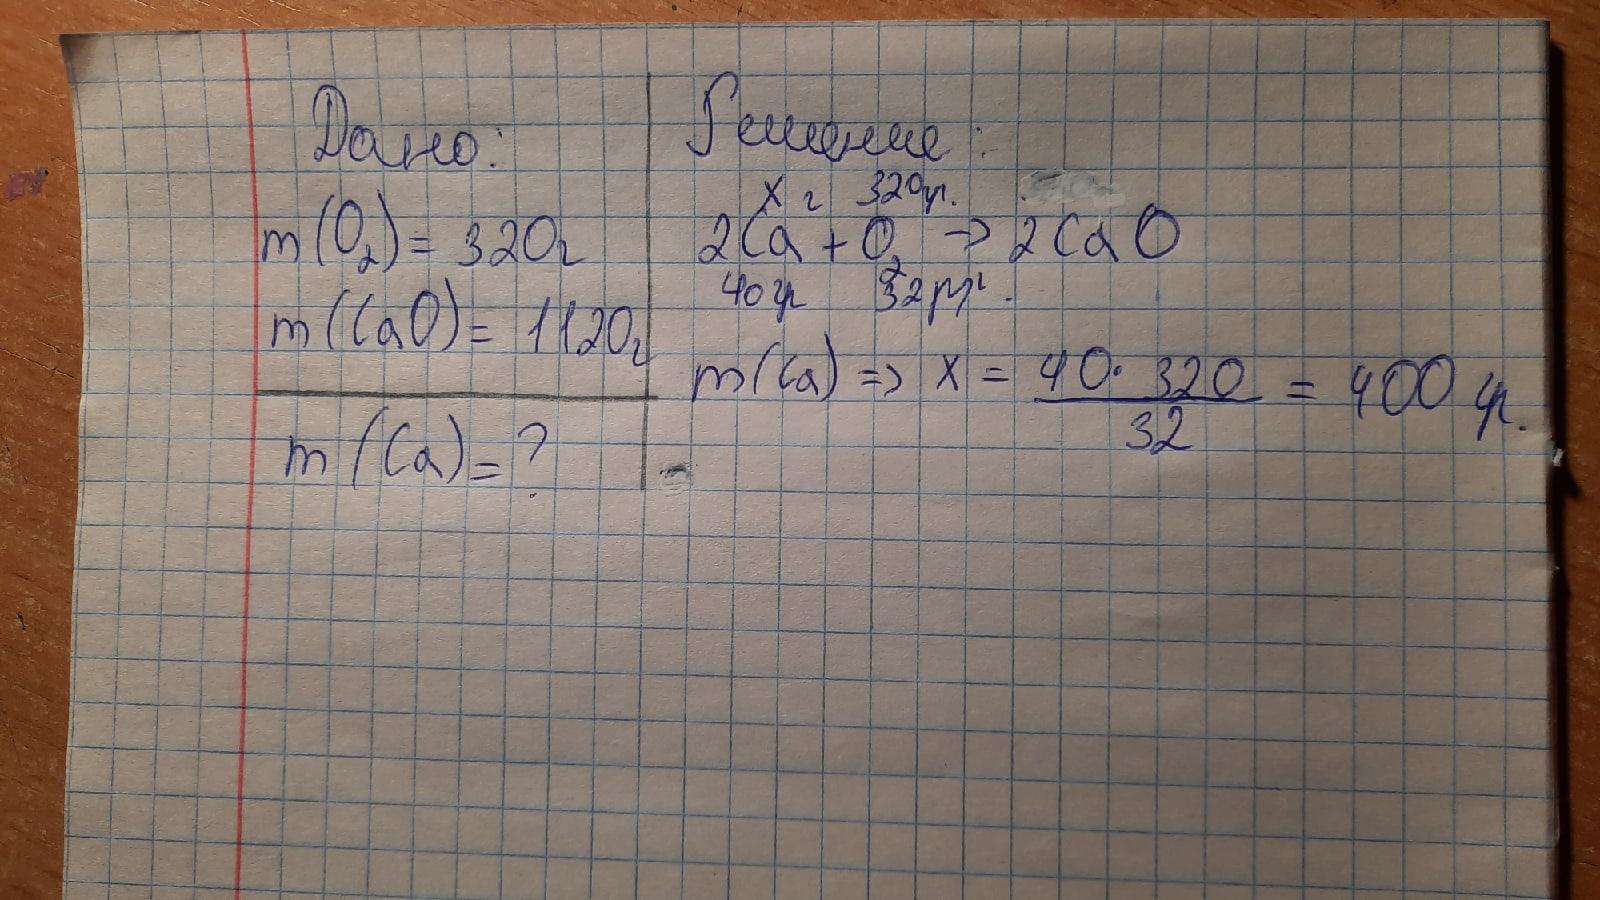 Дано:
m(O₂) = 320г
m(CaO) = 1120г
m(Ca) = ?
Решение:
x г 320гр.
2Ca + O₂ → 2CaO
40гр 32гр.
m(Ca) => x = 40· 320 / 32 = 400 гр.